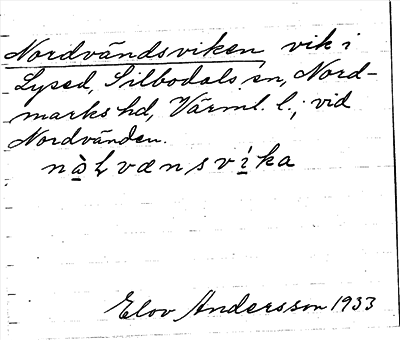 Nordvändsviken, vik i
Lysed, Silbodals sn, Nord-
marks hd, Värml. l.; vid
Nordvänden.
nɔ̀ɽvænsvíka
Elov Andersson 1933